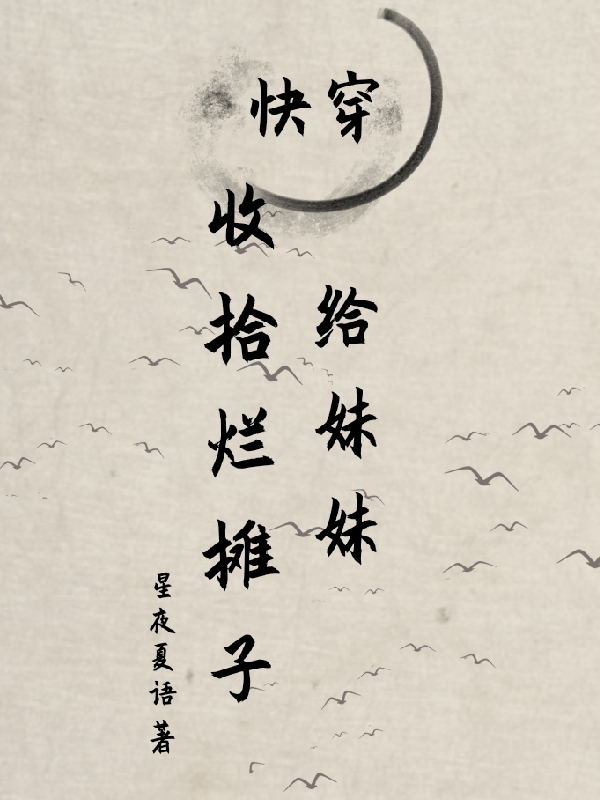 快穿
给妹妹
收拾烂摊子
星夜夏语 著